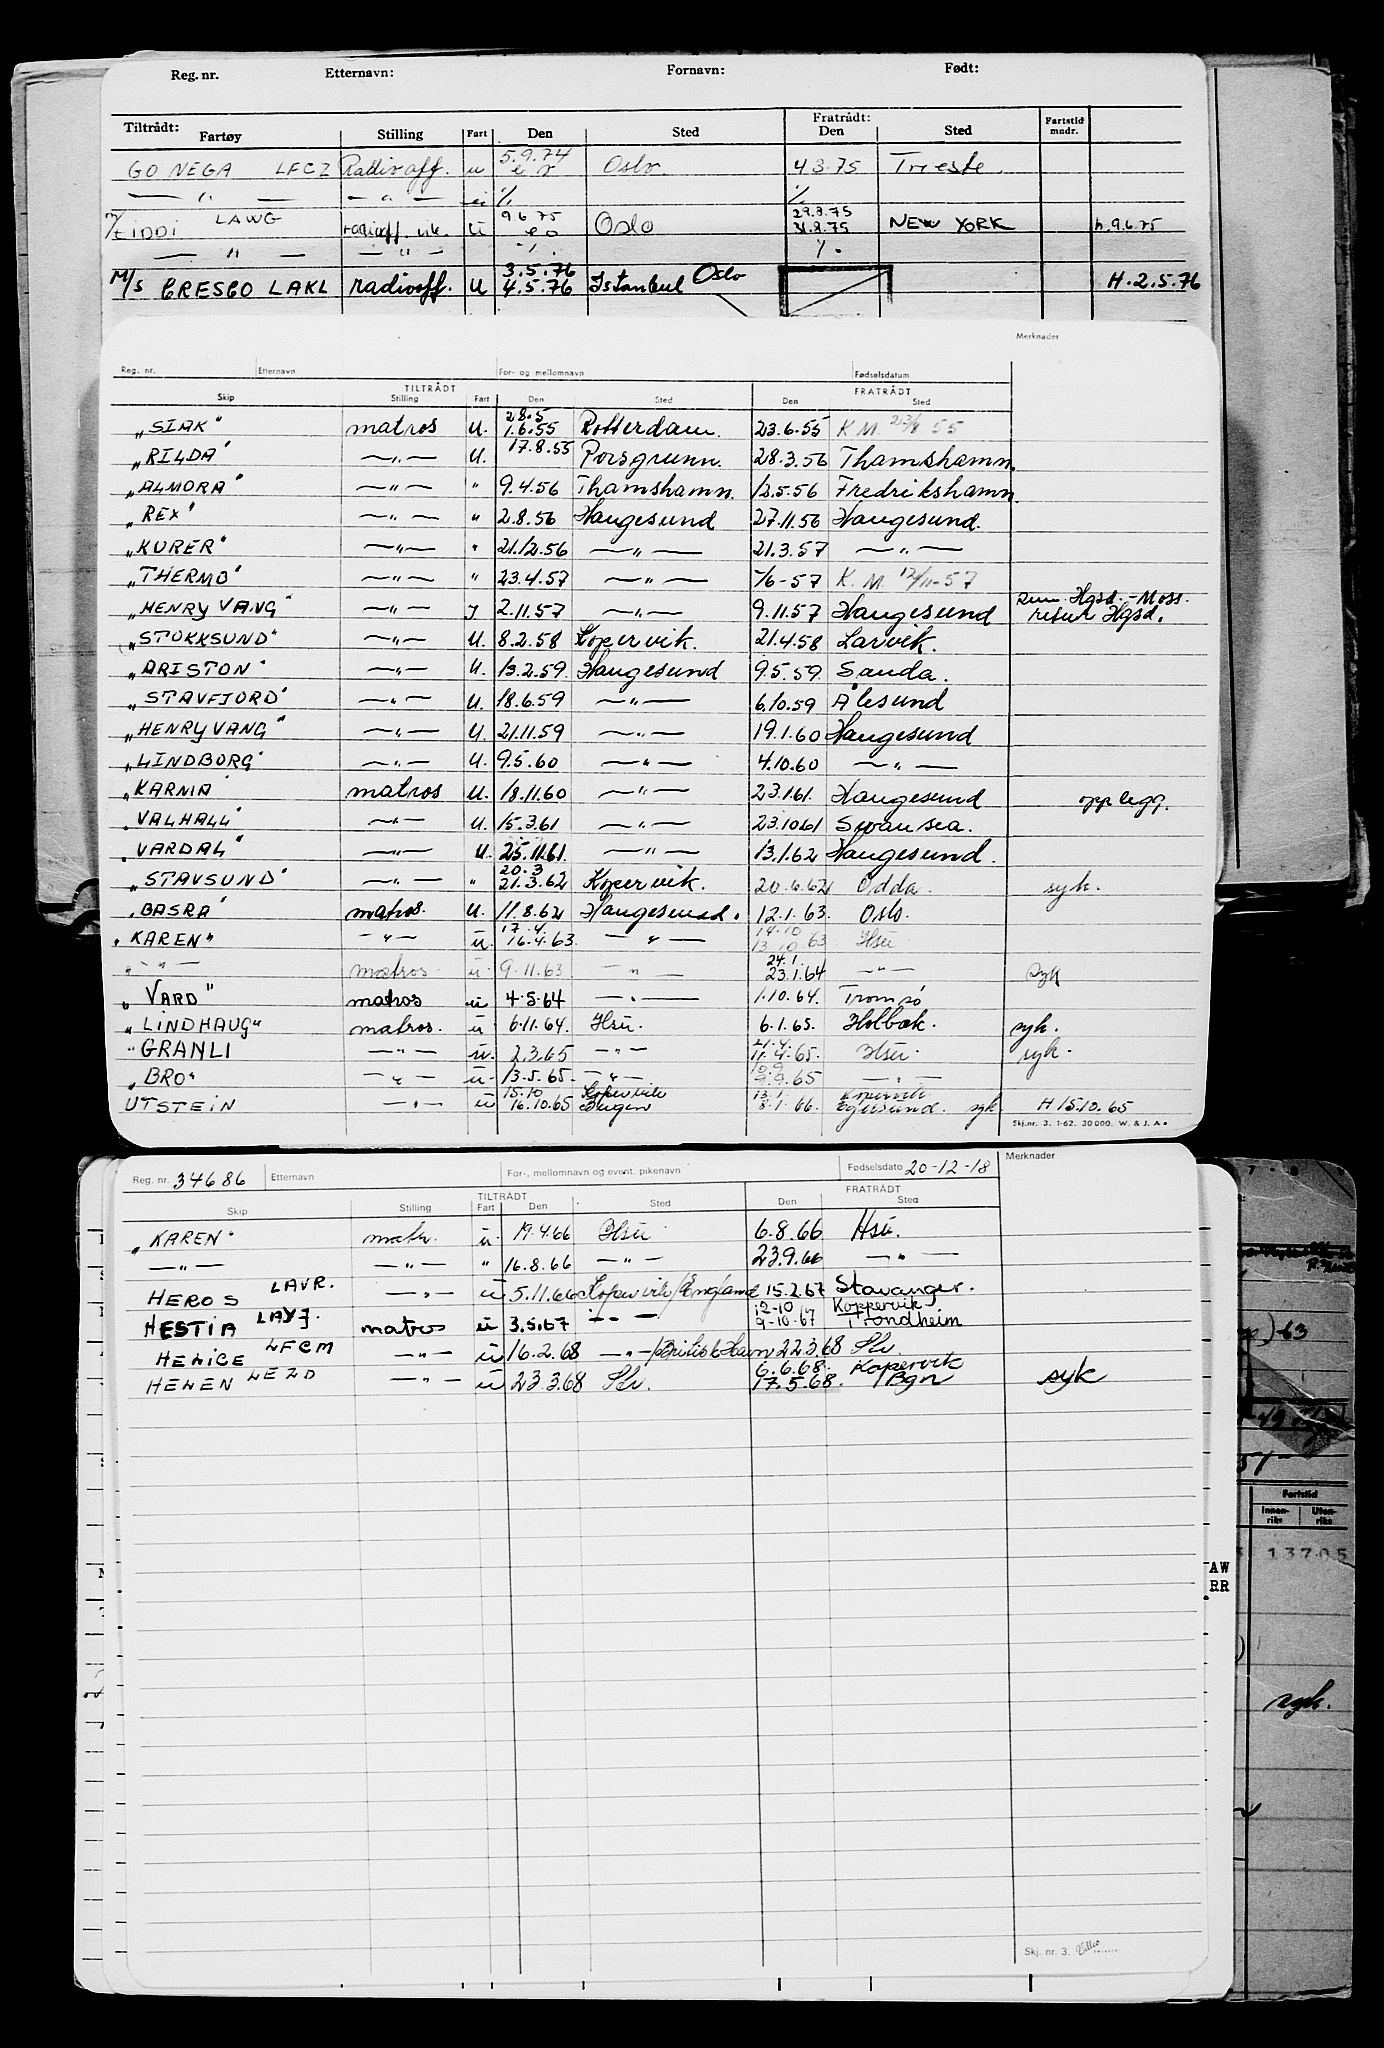 Reg. nr. Etternavn: Fornavn: Født:
Tiltrådt: Fratrådt:
Fartøy Stilling Fart Den Sted Den Sted Fartstid mndr.
GO NEGA LFCZ Radiooff. u 5.9.74 Oslo 4 3.75 Trieste.
— " — — " — u ·/. ·/.
LAWG radiooff. vik. ü 9.6.75 Oslo 29.8.75 31.8.75 NEW YORK h.9.6.75
— " — — " — ·/. ·/.
M/S CRESCO LAKL radiooff. U 3.5.76 4.5.76 Istanbul Oslo H.2.5.76
Merknader
Reg. nr. Etternavn For- og mellomnavn Fødselsdatum
TILTRÅDT FRATRÅDT
Skip Stilling Fart Den Sted Den Sted
„SIAK" matros U. 28.5 1.6.55 Rotterdam. 23.6.55 K.M. 55
„RILDA" — " — U. 17.8.55 Porsgrunn. 28.3.56 Thamshamn.
„ALMORA" — " — " 9.4.56 Thamshamn. 12.5.56 Fredrikshamn.
„REX" — " — " 2.8.56 Haugesund 27.11.56 Haugesund.
„KURER" — " — " 21.12.56 — " — 21.3.57 — " —
„THERMO" — " — " 23.4.57 — " — -/6-57 K.M. 12/11-57
„HENRY VANG" — " — I 2.11.57 — " — 9.11.57 Haugesund Hgsd.-Moss. retur Hgsd.
„STOKKSUND" — " — U. 8.2.58 Kopervik. 21.4.58 Larvik.
„ARISTON" — " — U. 13.2.59 Haugesund 9.5.59 Sauda.
„STAVFJORD" — " — U. 18.6.59 — " — 6.10.59 Ålesund
„HENRY VANG" — " — U. 21.11.59 — " — 19.1.60 Haugesund
„LINDBORG" — " — U. 9.5.60 — " — 4.10.60 — " —
„KARNIA" matros U. 18.11.60 — " — 23.1.61. Haugesund opplegg.
„VALHALL" — " — U. 15.3.61 — " — 23.10.61 Swansea.
„VARDAL" — " — U. 25.11.61. — " — 13.1.62 Haugesund.
„STAVSUND" — " — " 20.3 21.3.62 Kopervik. 20.6.62 Odda. syk.
„BASRA" matros. U. 11.8.62 Haugesund. 12.1.63. Oslo.
„KAREN" — " — ü. 17.4. 16.4.63. — " — 14.10 13.10 63 Hsu
„ — " — matros. ü. 9.11.63 — " — 24.1. 23.1.64 — " — syk
„VARD" matros ü 4.5.64 — " — 1.10.64. Tromsø
„LINDHAUG" matros. ü. 6.11.64. Hsu. 6.1.65. Holbæk. syk.
"GRANLI — " — ü. 2.3.65 — " — 21.4. 11.4.65. Hsu. syk.
„BRO" — " — ü. 13.5.65. — " — 10.9 9.9.65 — " —
UTSTEIN — " — ü 15.10 16.10.65 Kopervik Bergen 8.1.66. Kopervik Egersund. syk H 15.10.65
Skj.nr. 3. 1-62. 30 000. W. & J. A.
Reg. nr. 34686 Etternavn For-, mellomnavn og event. pikenavn Fødselsdato 20-12-18 Merknader
TILTRÅDT FRATRÅDT
Skip Stilling Fart Den Sted Den Sted
„KAREN" matr. ü. 19.4.66 Hsu. 6.8.66 Hsu.
— " — — " — " 16.8.66 — " — 23.9.66 — " —
HEROS LAVR. — " — ü 5.11.66 Kopervik/England 15.2.67 Stavanger.
HESTIA matros ü 3.5.67 — " — 12-10 9-10-67 Koppervik Trondheim
HELICE LFCM — " — ü 16.2.68 — " — /British Havn 22.3.68 Slv.
HELEN LEZD — " — ü 23.3.68 Slv. 6.6.68. 17.5.68. Kopervik /Bgn syk
Skj. nr. 3.
)-63
57-
Fartstid
Innen-riks Uten-riks
13705
AW
RR
syk.